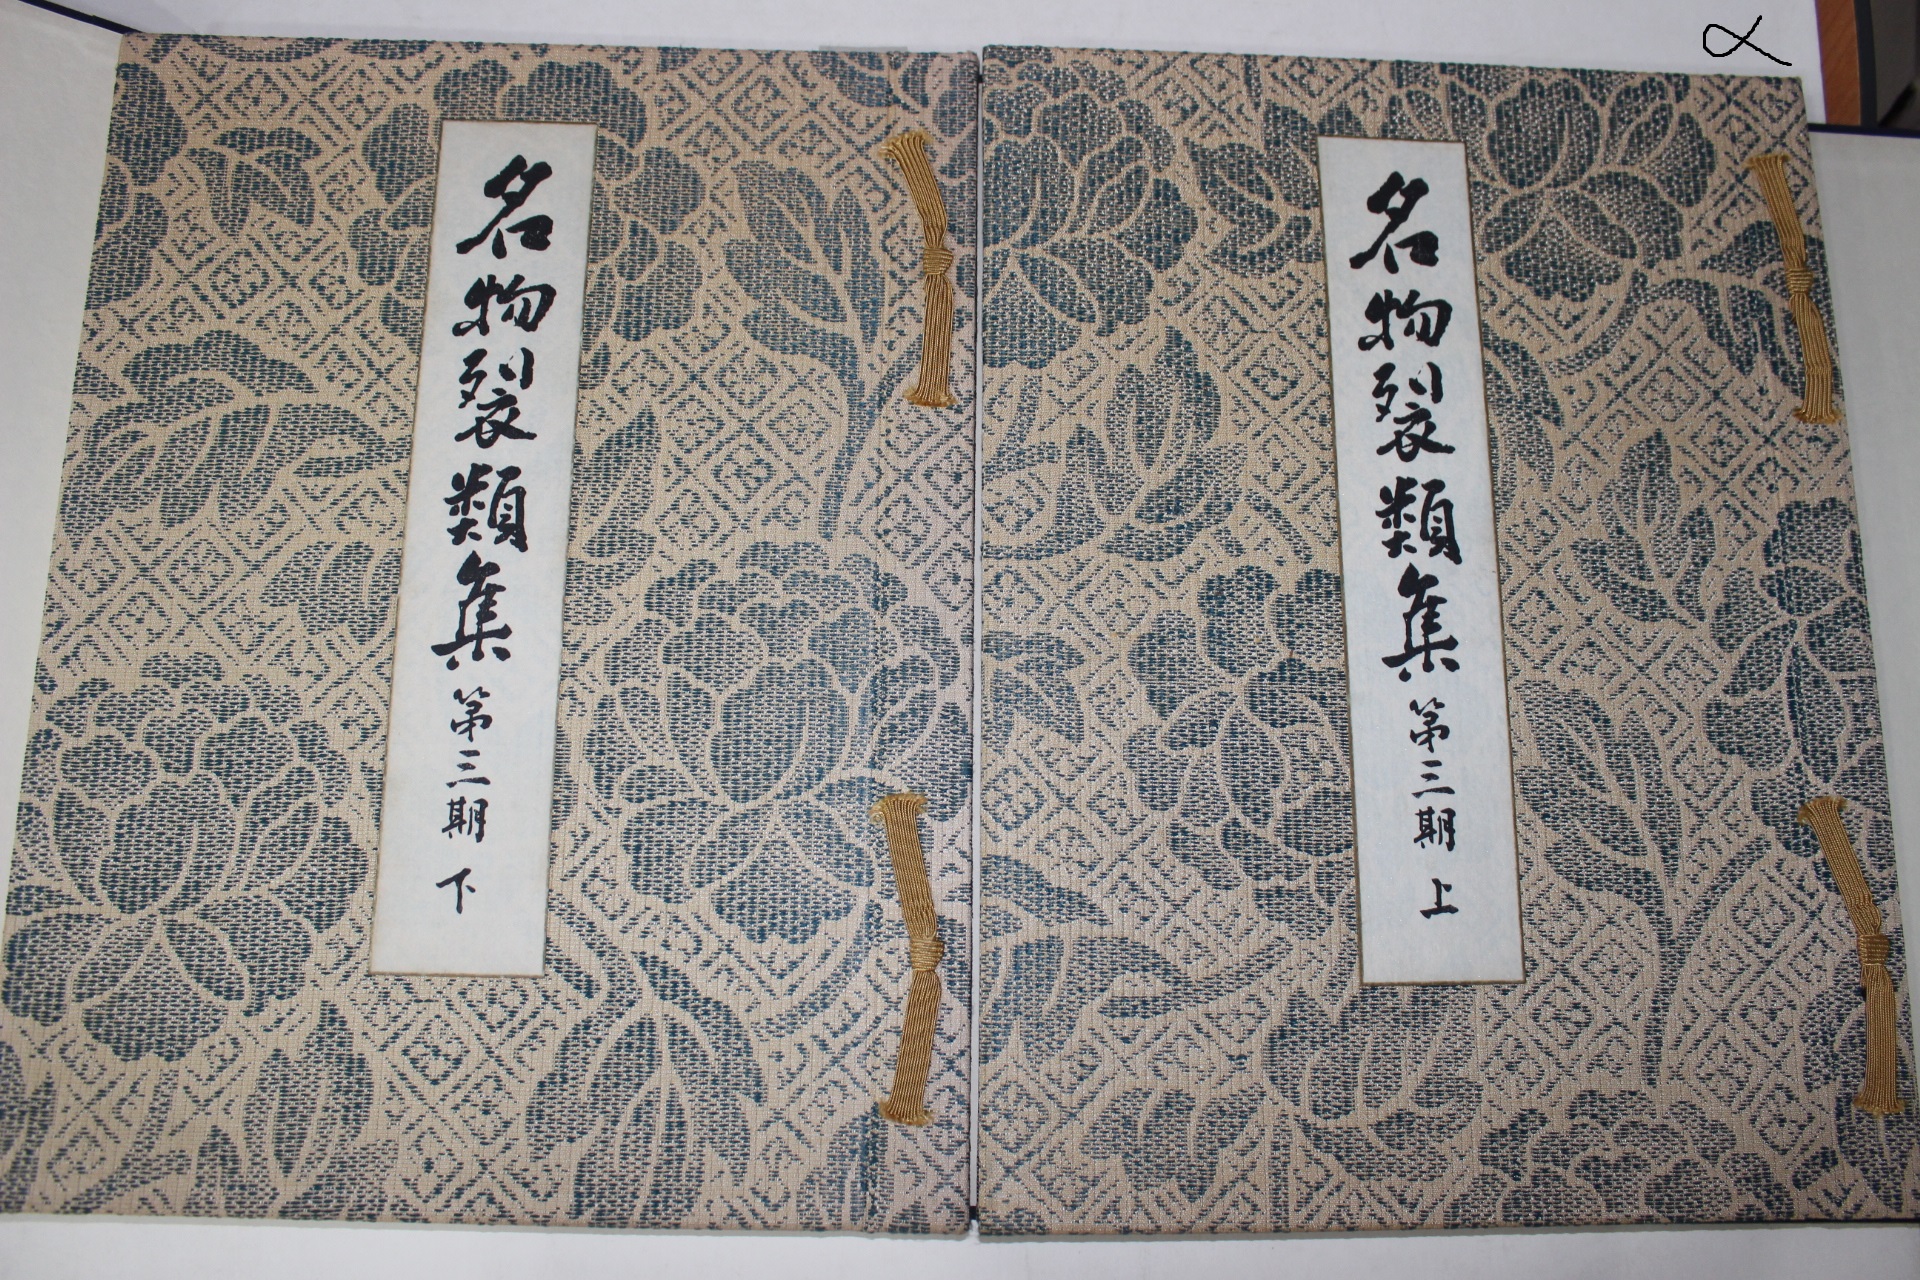 名物裂類集 第三期 上
名物裂類集 第三期 下
∝